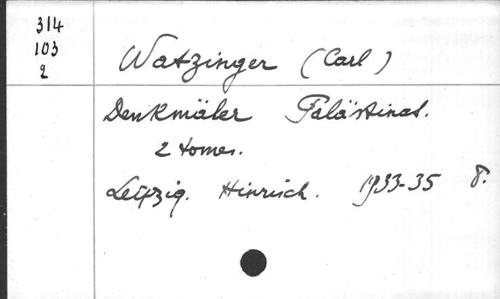 314
103
2
Watzinger (Carl)
Denkmäler Palästinas.
2 tomes.
Leipzig. Hinrich. 1933-35 8°.